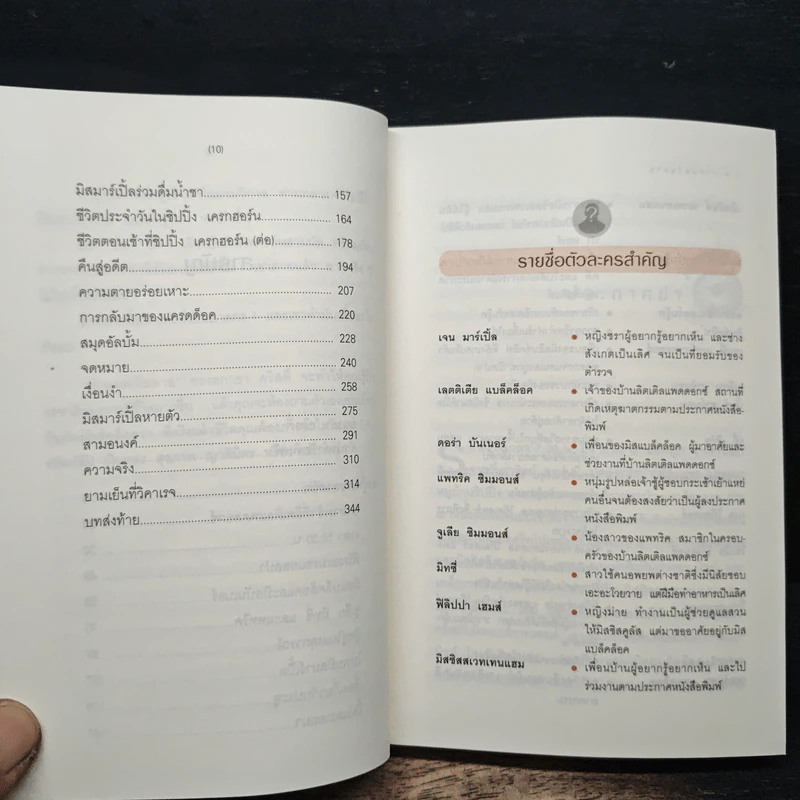 (10)
มิสมาร์เปิ้ลร่วมดื่มน้ำชา.......................... 157
ชีวิตประจำวันในชิปปิ้ง เครกฮอร์น.............. 164
ชีวิตตอนเช้าที่ชิปปิ้ง เครกฮอร์น (ต่อ)........... 178
คืนสู่อดีต................................................ 194
ความตายอร่อยเหาะ................................ 207
การกลับมาของแครดด็อค........................ 220
สมุดอัลบั้ม............................................. 228
จดหมาย................................................ 240
เงื่อนงำ.................................................. 258
มิสมาร์เปิ้ลหายตัว................................... 275
สามอนงค์.............................................. 291
ความจริง................................................ 310
ยามเย็นที่วิคาเรจ.................................... 314
บทส่งท้าย.............................................. 344
รายชื่อตัวละครสำคัญ
เจน มาร์เปิ้ล • หญิงชราผู้อยากรู้อยากเห็น และช่าง
สังเกตเป็นเลิศ จนเป็นที่ยอมรับของ
ตำรวจ
เลตติเตีย แบล็คล็อค • เจ้าของบ้านลิตเติลแพดดอกซ์ สถานที่
เกิดเหตุฆาตกรรมตามประกาศหนังสือ-
พิมพ์
ดอร่า บันเนอร์ • เพื่อนของมิสแบล็คล็อค ผู้มาอาศัยและ
ช่วยงานที่บ้านลิตเติลแพดดอกซ์
แพทริค ซิมมอนส์ • หนุ่มรูปหล่อเจ้าชู้ผู้ชอบกระเซ้าเย้าแหย่
คนอื่นจนต้องสงสัยว่าเป็นผู้ลงประกาศ
หนังสือพิมพ์
จูเลีย ซิมมอนส์ • น้องสาวของแพทริค สมาชิกในครอบ-
ครัวของบ้านลิตเติลแพดดอกซ์
มิทซี่ • สาวใช้คนอพยพต่างชาติซึ่งมีนิสัยชอบ
เอะอะโวยวาย แต่ฝีมือทำอาหารเป็นเลิศ
ฟิลิปปา เฮมส์ • หญิงม่าย ทำงานเป็นผู้ช่วยดูแลสวน
ให้มิสซิสลูคัส แต่มาขออาศัยอยู่กับมิส
แบล็คล็อค
มิสซิสสเวทเทนแฮม • เพื่อนบ้านผู้อยากรู้อยากเห็น และไป
ร่วมงานตามประกาศหนังสือพิมพ์